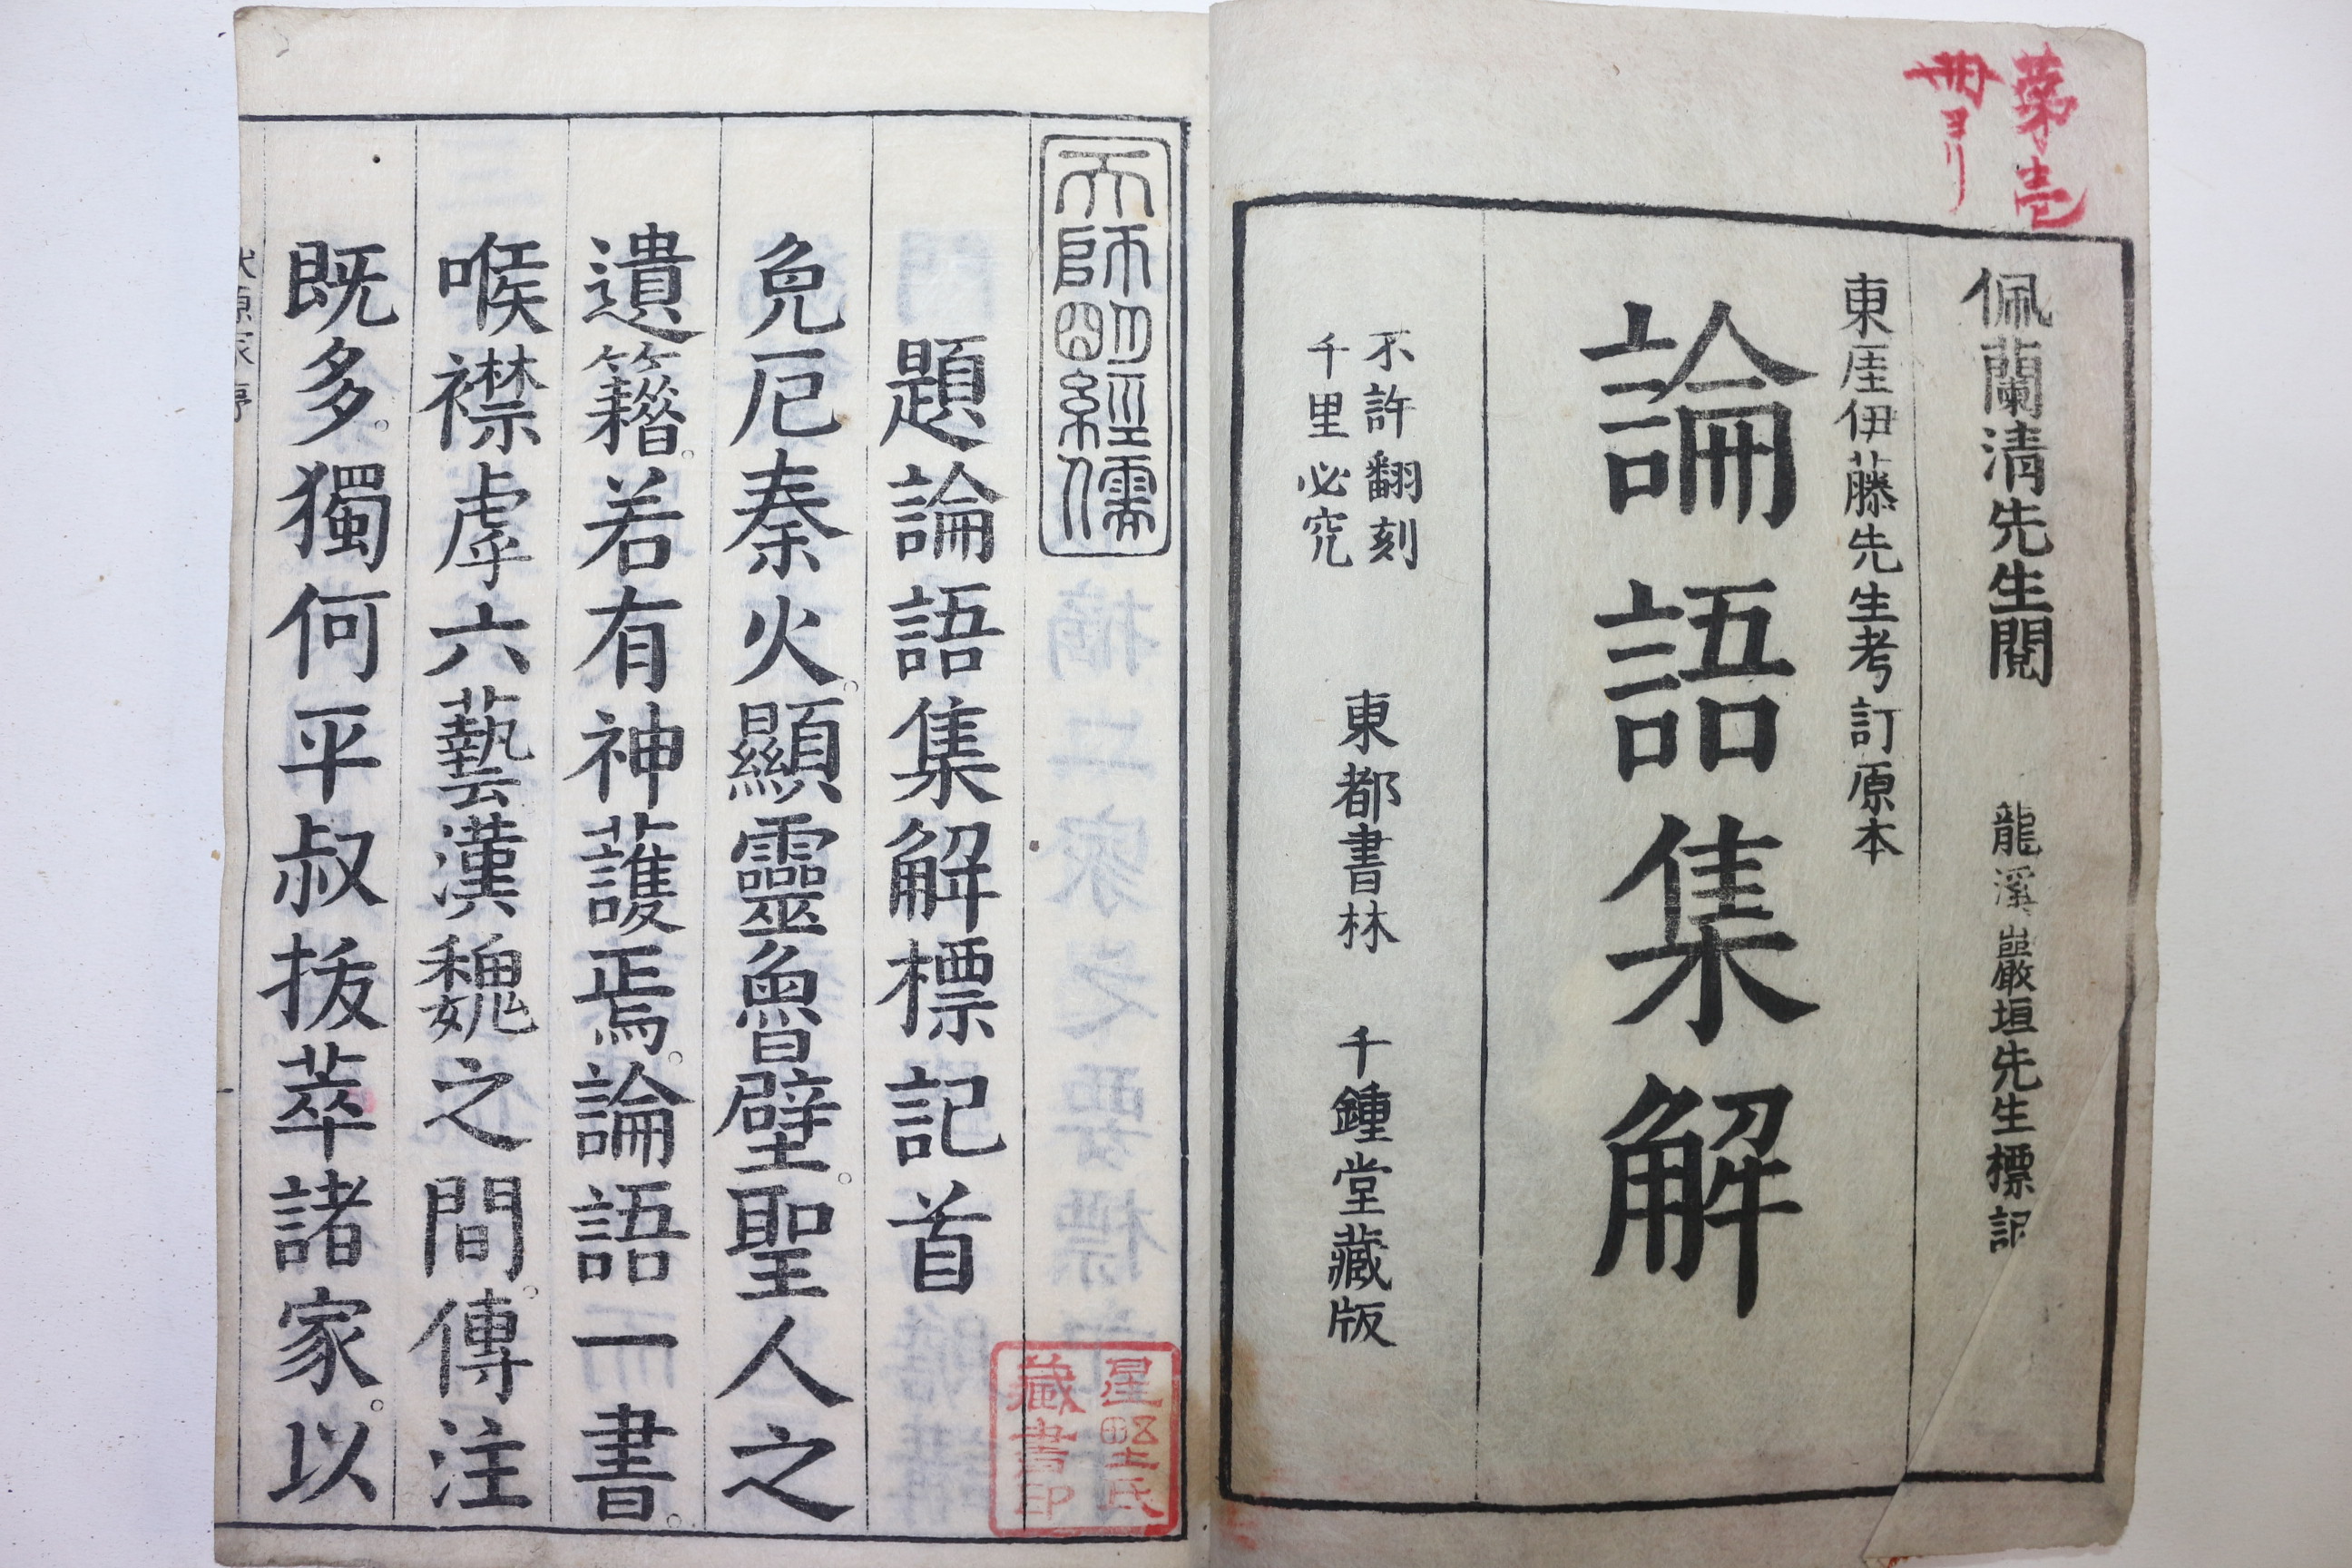 第壱
冊ヨリ
佩蘭清先生閲 龍溪巖垣先生標記
東厓伊藤先生考訂原本
論語集解
不許翻刻
千里必究
東都書林 千鍾堂藏版
天師明經儒
題論語集解標記首
免厄秦火。顯靈魯壁。聖人之
遺籍。若有神護焉。論語一書。
喉襟虖六藝漢魏之間。傳注
既多。獨何平叔拔萃諸家。以
星野氏
藏書印